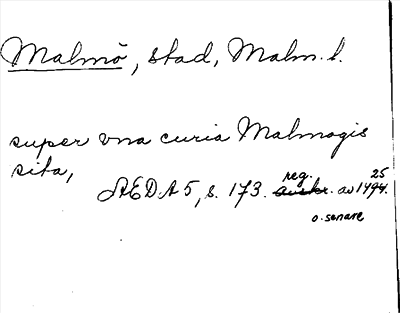 Malmö, stad, Malm. l.
super vna curia Malmogis
sita,
ÆDA 5, s. 173. reg. avskr. av 1494. 25
o. senare